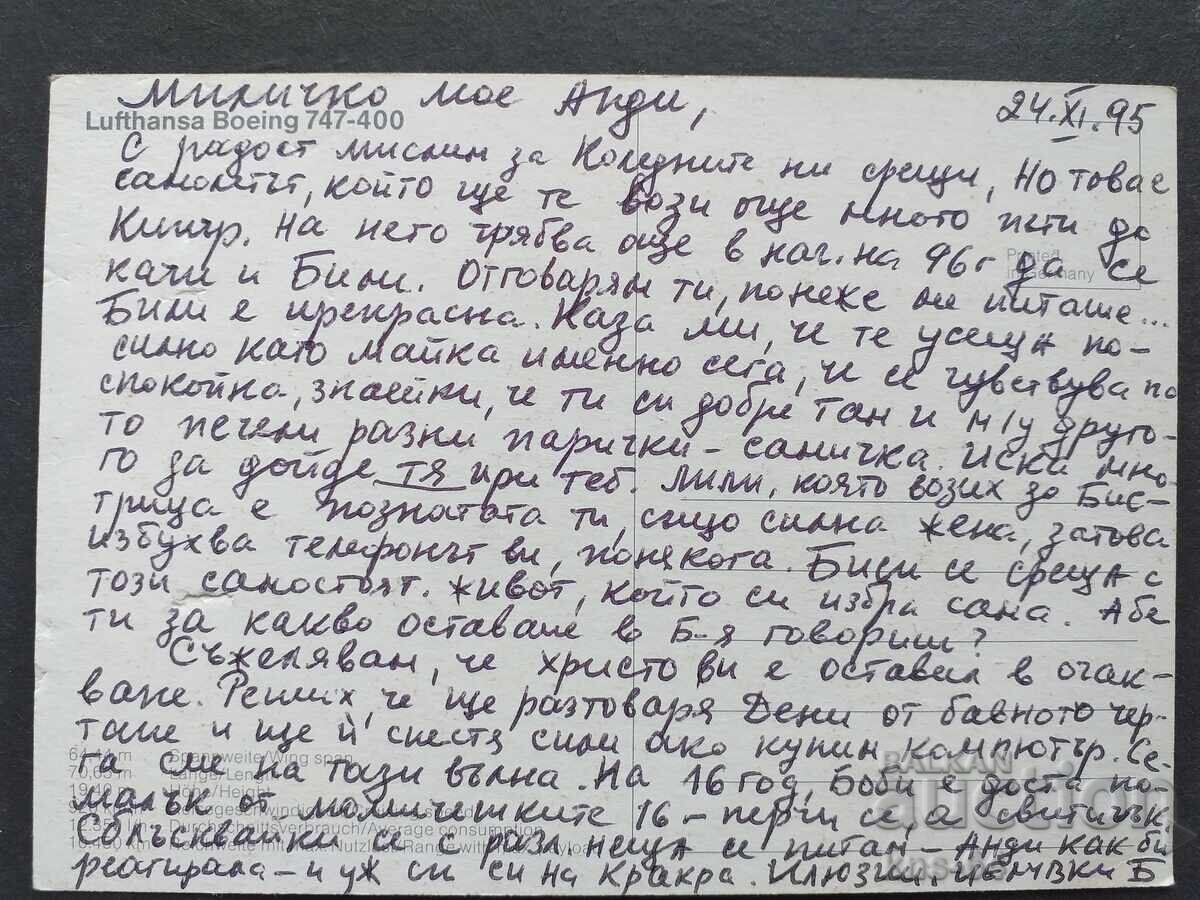 Миличко мое Анди,
24.XI.95
Lufthansa Boeing 747-400
С радост мислим за Коледните ни срещи, но това е
самолетът, който ще те вози още много пъти до
Кипър. На него трябва още в нач. на 96г да се
Printed
in Germany
качи и Били. Отговарям ти, понеже ни питаше...
Били е прекрасна. Каза ми, че те усеща по-
силно като майка именно сега, че се чувствува по
спокойна, знаейки, че ти си добре там и м/у друго-
то печели разни парички – саничка. Иска мно-
го да дойде тя при теб. Лили, която возих до Бис-
трица е познатата ти, също силна жена, затова
избухва телефонът ви, понякога. Били се среща с
този самостоят. живот, който си избра сама. Абе
ти за какво оставане в Б-я говориш?
Съжелявам, че Христо ви е оставил в очак-
ване. Реших, че ще разтоваря Дени от бавното чер-
тане и ще ѝ спестя сили ако купим компютър. Се-
64,44 m Spannweite/Wing span
га сме на тази вълна. На 16 год, Боби е доста по-
70,65 m Länge/Length
19,40 m Höhe/Height
малък от момичешките 16 – перчи се, а свитичък.
Сблъсквайки се с разл. неща се питам – Анди как би
Durchschnittsverbrauch/Average consumption
реагирала – и уж си си на Кракра. Илюзии. Целувки Б
BALKAN
auction